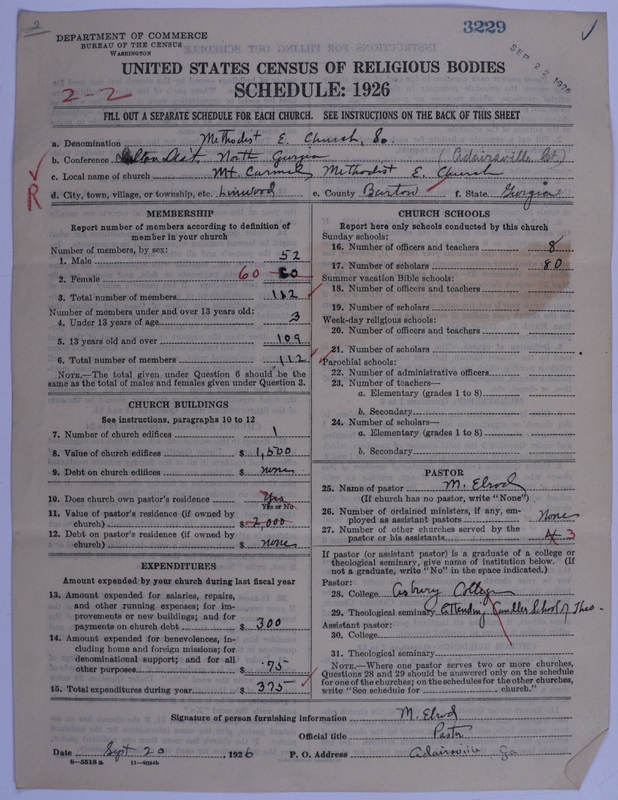 2
DEPARTMENT OF COMMERCE
BUREAU OF THE CENSUS
WASHINGTON
3229
SEP 22 1926
UNITED STATES CENSUS OF RELIGIOUS BODIES
2-2
SCHEDULE: 1926
FILL OUT A SEPARATE SCHEDULE FOR EACH CHURCH. SEE INSTRUCTIONS ON THE BACK OF THIS SHEET
a. Denomination Methodist E. Church, So.
b. Conference Dalton Dist. North Georgia (Adairsville Ct.)
c. Local name of church Mt. Carmel Methodist E. Church
R
d. City, town, village, or township, etc. Linwood e. County Bartow f. State Georgia
MEMBERSHIP
Report number of members according to definition of member in your church
Number of members, by sex:
1. Male 52
2. Female 60 60
3. Total number of members 112
Number of members under and over 13 years old:
4. Under 13 years of age 3
5. 13 years old and over 109
6. Total number of members 112
NOTE.—The total given under Question 6 should be the
same as the total of males and females given under Question 3.
CHURCH BUILDINGS
See instructions, paragraphs 10 to 12
7. Number of church edifices 1
8. Value of church edifices $ 1,500
9. Debt on church edifices $ none
10. Does church own pastor's residence Yes
Yes or No
11. Value of pastor's residence (if owned by
church) $ 2,000
12. Debt on pastor's residence (if owned by
church) $ none
EXPENDITURES
Amount expended by your church during last fiscal year
13. Amount expended for salaries, repairs,
and other running expenses; for im-
provements or new buildings; and for
payments on church debt $ 300
14. Amount expended for benevolences, in-
cluding home and foreign missions; for
denominational support; and for all
other purposes $ 75
15. Total expenditures during year $ 375
CHURCH SCHOOLS
Report here only schools conducted by this church
Sunday schools:
16. Number of officers and teachers 8
17. Number of scholars 80
Summer vacation Bible schools:
18. Number of officers and teachers
19. Number of scholars
Week-day religious schools:
20. Number of officers and teachers
21. Number of scholars
Parochial schools:
22. Number of administrative officers
23. Number of teachers—
a. Elementary (grades 1 to 8)
b. Secondary
24. Number of scholars—
a. Elementary (grades 1 to 8)
b. Secondary
PASTOR
25. Name of pastor M. Elrod
(If church has no pastor, write "None")
26. Number of ordained ministers, if any, em-
ployed as assistant pastors None
27. Number of other churches served by the
pastor or his assistants 4 3
If pastor (or assistant pastor) is a graduate of a college or
theological seminary, give name of institution below. (If
not a graduate, write "No" in the space indicated.)
Pastor:
28. College Asbury College
29. Theological seminary Attending Candler School of Theo.
Assistant pastor:
30. College
31. Theological seminary
NOTE.—Where one pastor serves two or more churches,
Questions 28 and 29 should be answered only on the schedule
for one of the churches; on the schedules for the other churches,
write "See schedule for church."
Signature of person furnishing information M. Elrod
Official title Pastor
Date Sept 20, 1926 P. O. Address Adairsville, Ga
8—5518a 11—9054b